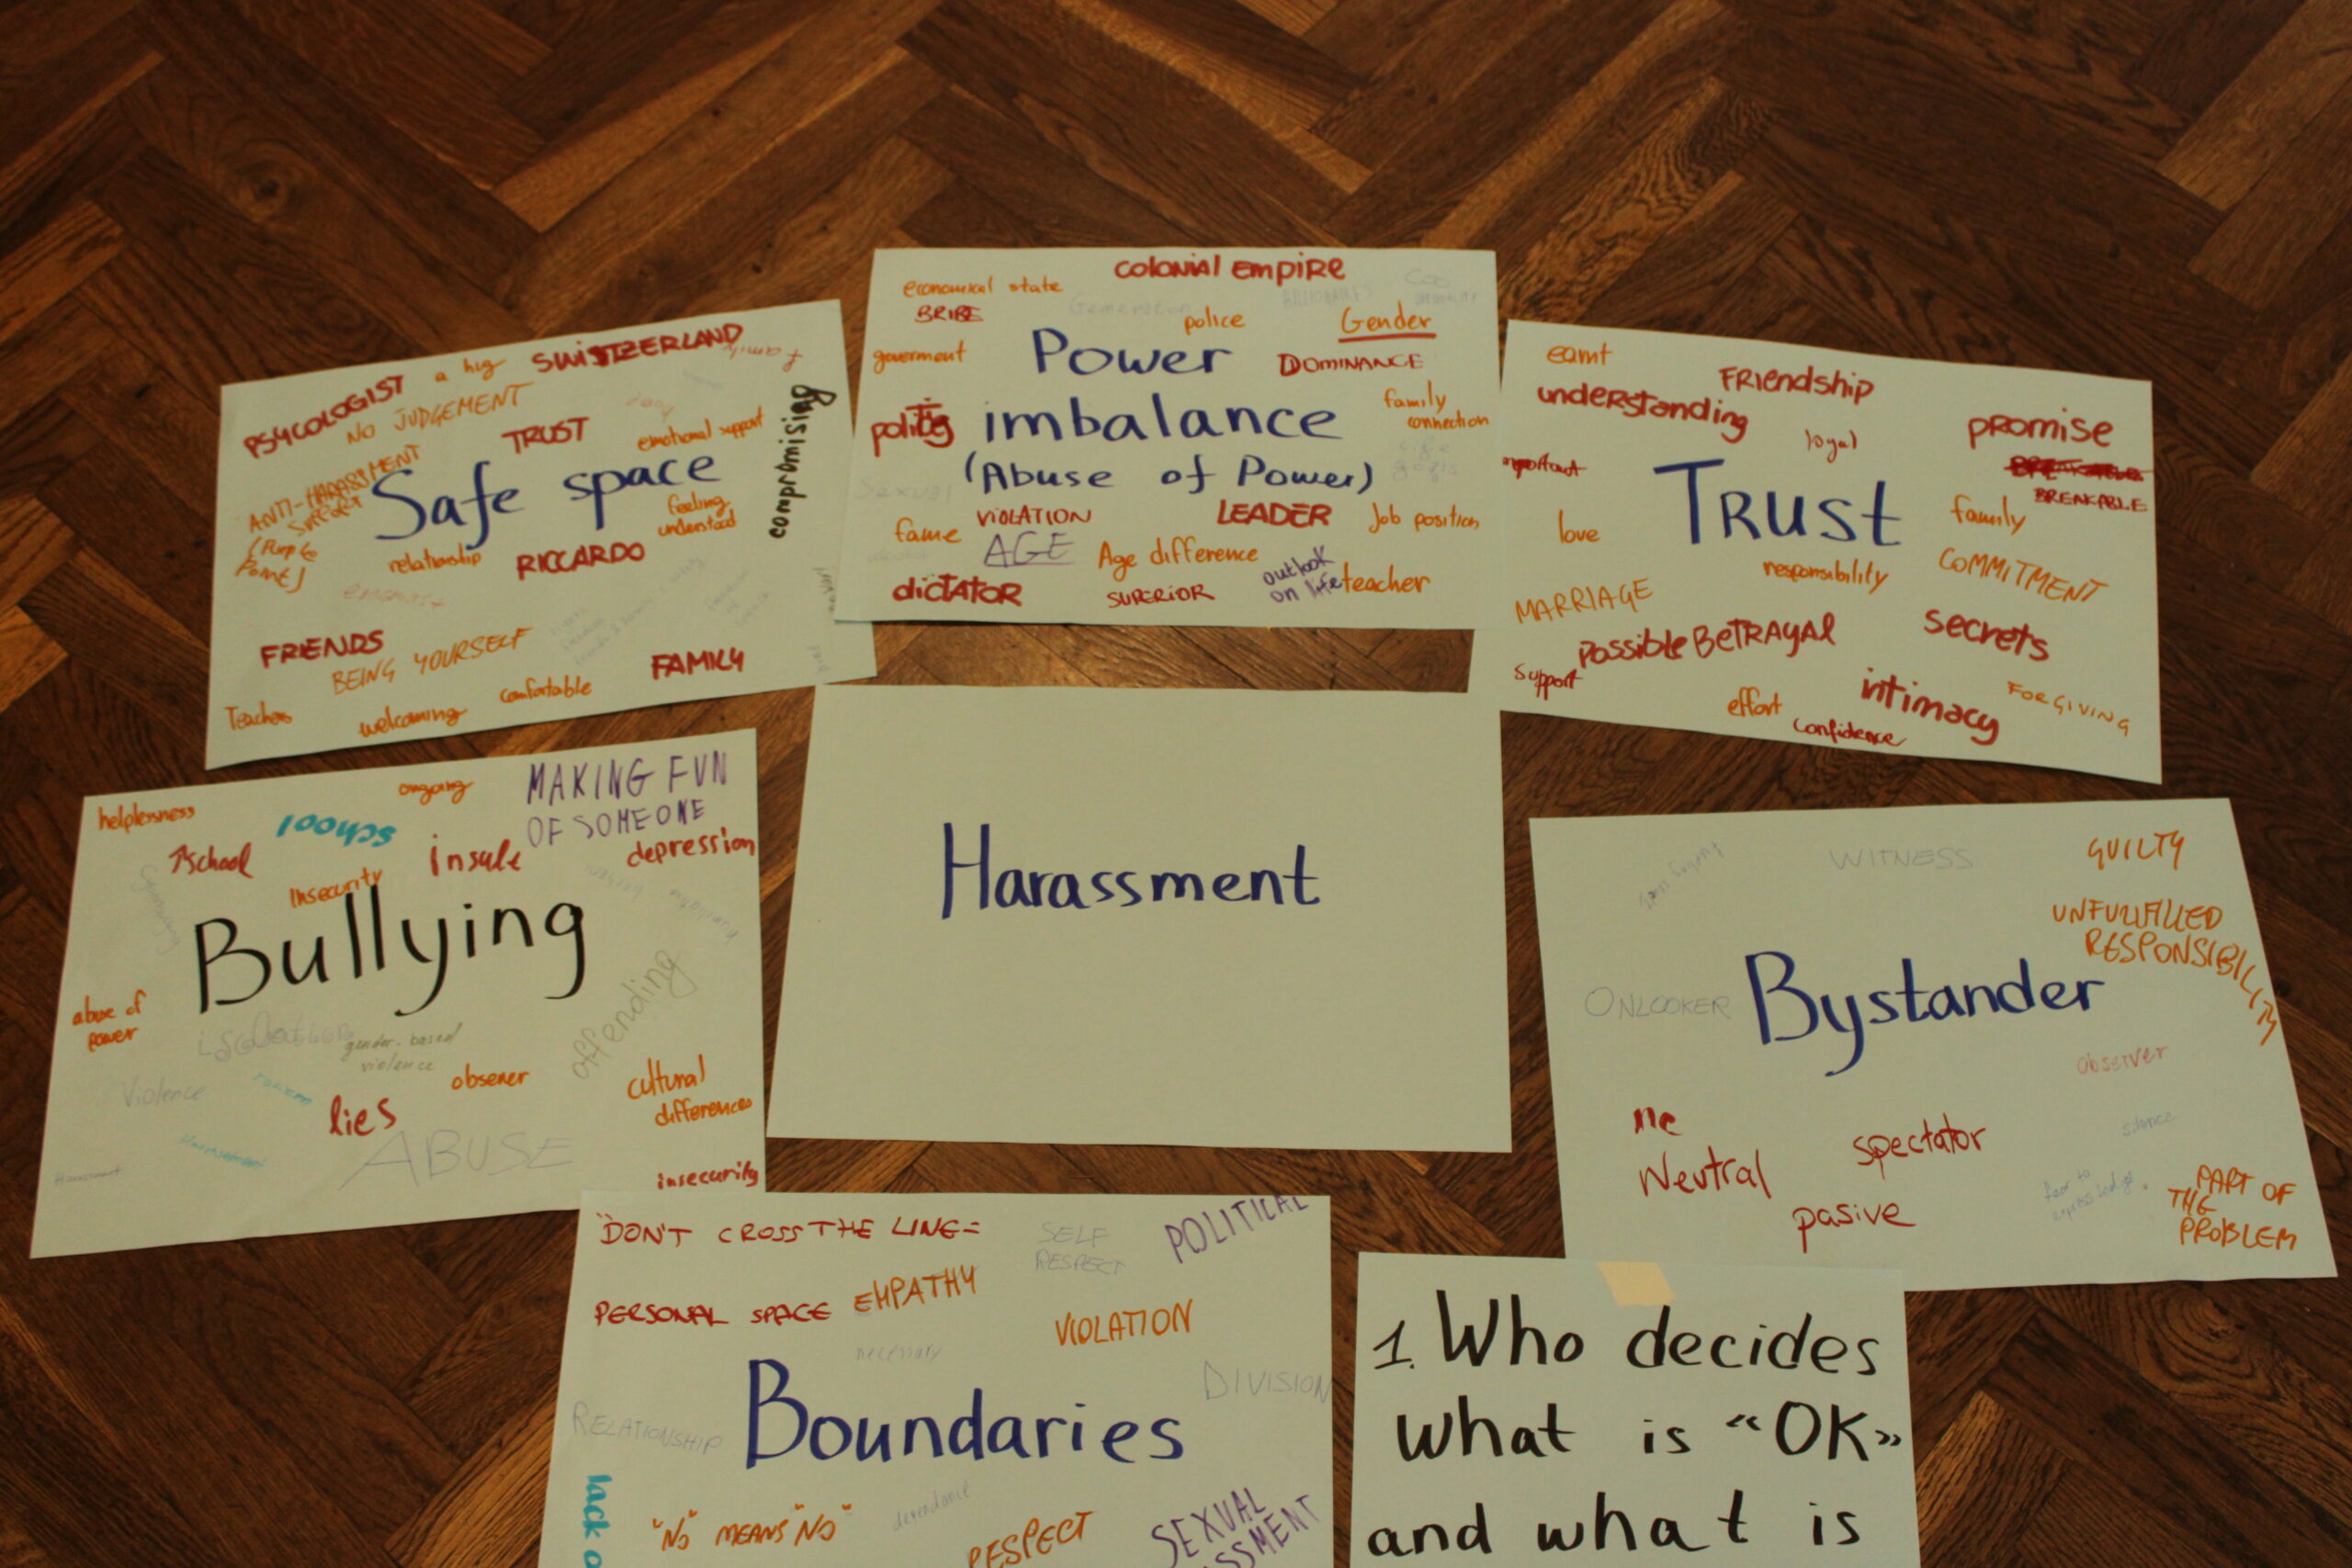 COLONIAL EMPIRE
economical state
Generation
BRIBE
police
Gender
goverment
Power
DOMINANCE
imbalance
family
connection
(Abuse of Power)
Sexual
fame
VIOLATION
LEADER
Job position
AGE
Age difference
outlook
on life
teacher
dictator
SUPERIOR
PSYCOLOGIST
a hug
SWITZERLAND
family
NO JUDGEMENT
TRUST
emotional support
compromising
ANTI-HARASSMENT
Safe space
feeling
understood
(Purple
Point)
relationship
RICCARDO
FRIENDS
BEING YOURSELF
FAMILY
Teachers
welcoming
comfortable
earnt
understanding
Friendship
promise
loyal
important
TRUST
BREAKABLE
love
family
responsibility
COMMITMENT
MARRIAGE
Possible BETRAYAL
secrets
support
effort
intimacy
FORGIVING
confidence
helplessness
ongoing
MAKING FUN
OF SOMEONE
school
school
insult
depression
Insecurity
Bullying
offending
abuse of
power
isolation
gender-based
violence
Violence
observer
cultural
differences
lies
ABUSE
Harassment
insecurity
Harassment
WITNESS
GUILTY
UNFULFILLED
RESPONSIBILITY
ONLOOKER
Bystander
observer
me
Neutral
spectator
silence
pasive
PART OF
THE
PROBLEM
"DON'T CROSS THE LINE"
SELF
RESPECT
POLITICAL
PERSONAL SPACE
EMPATHY
VIOLATION
necessary
DIVISION
RELATIONSHIP
Boundaries
lack o
"NO" MEANS "NO"
RESPECT
SEXUAL
1. Who decides
what is «OK»
and what is